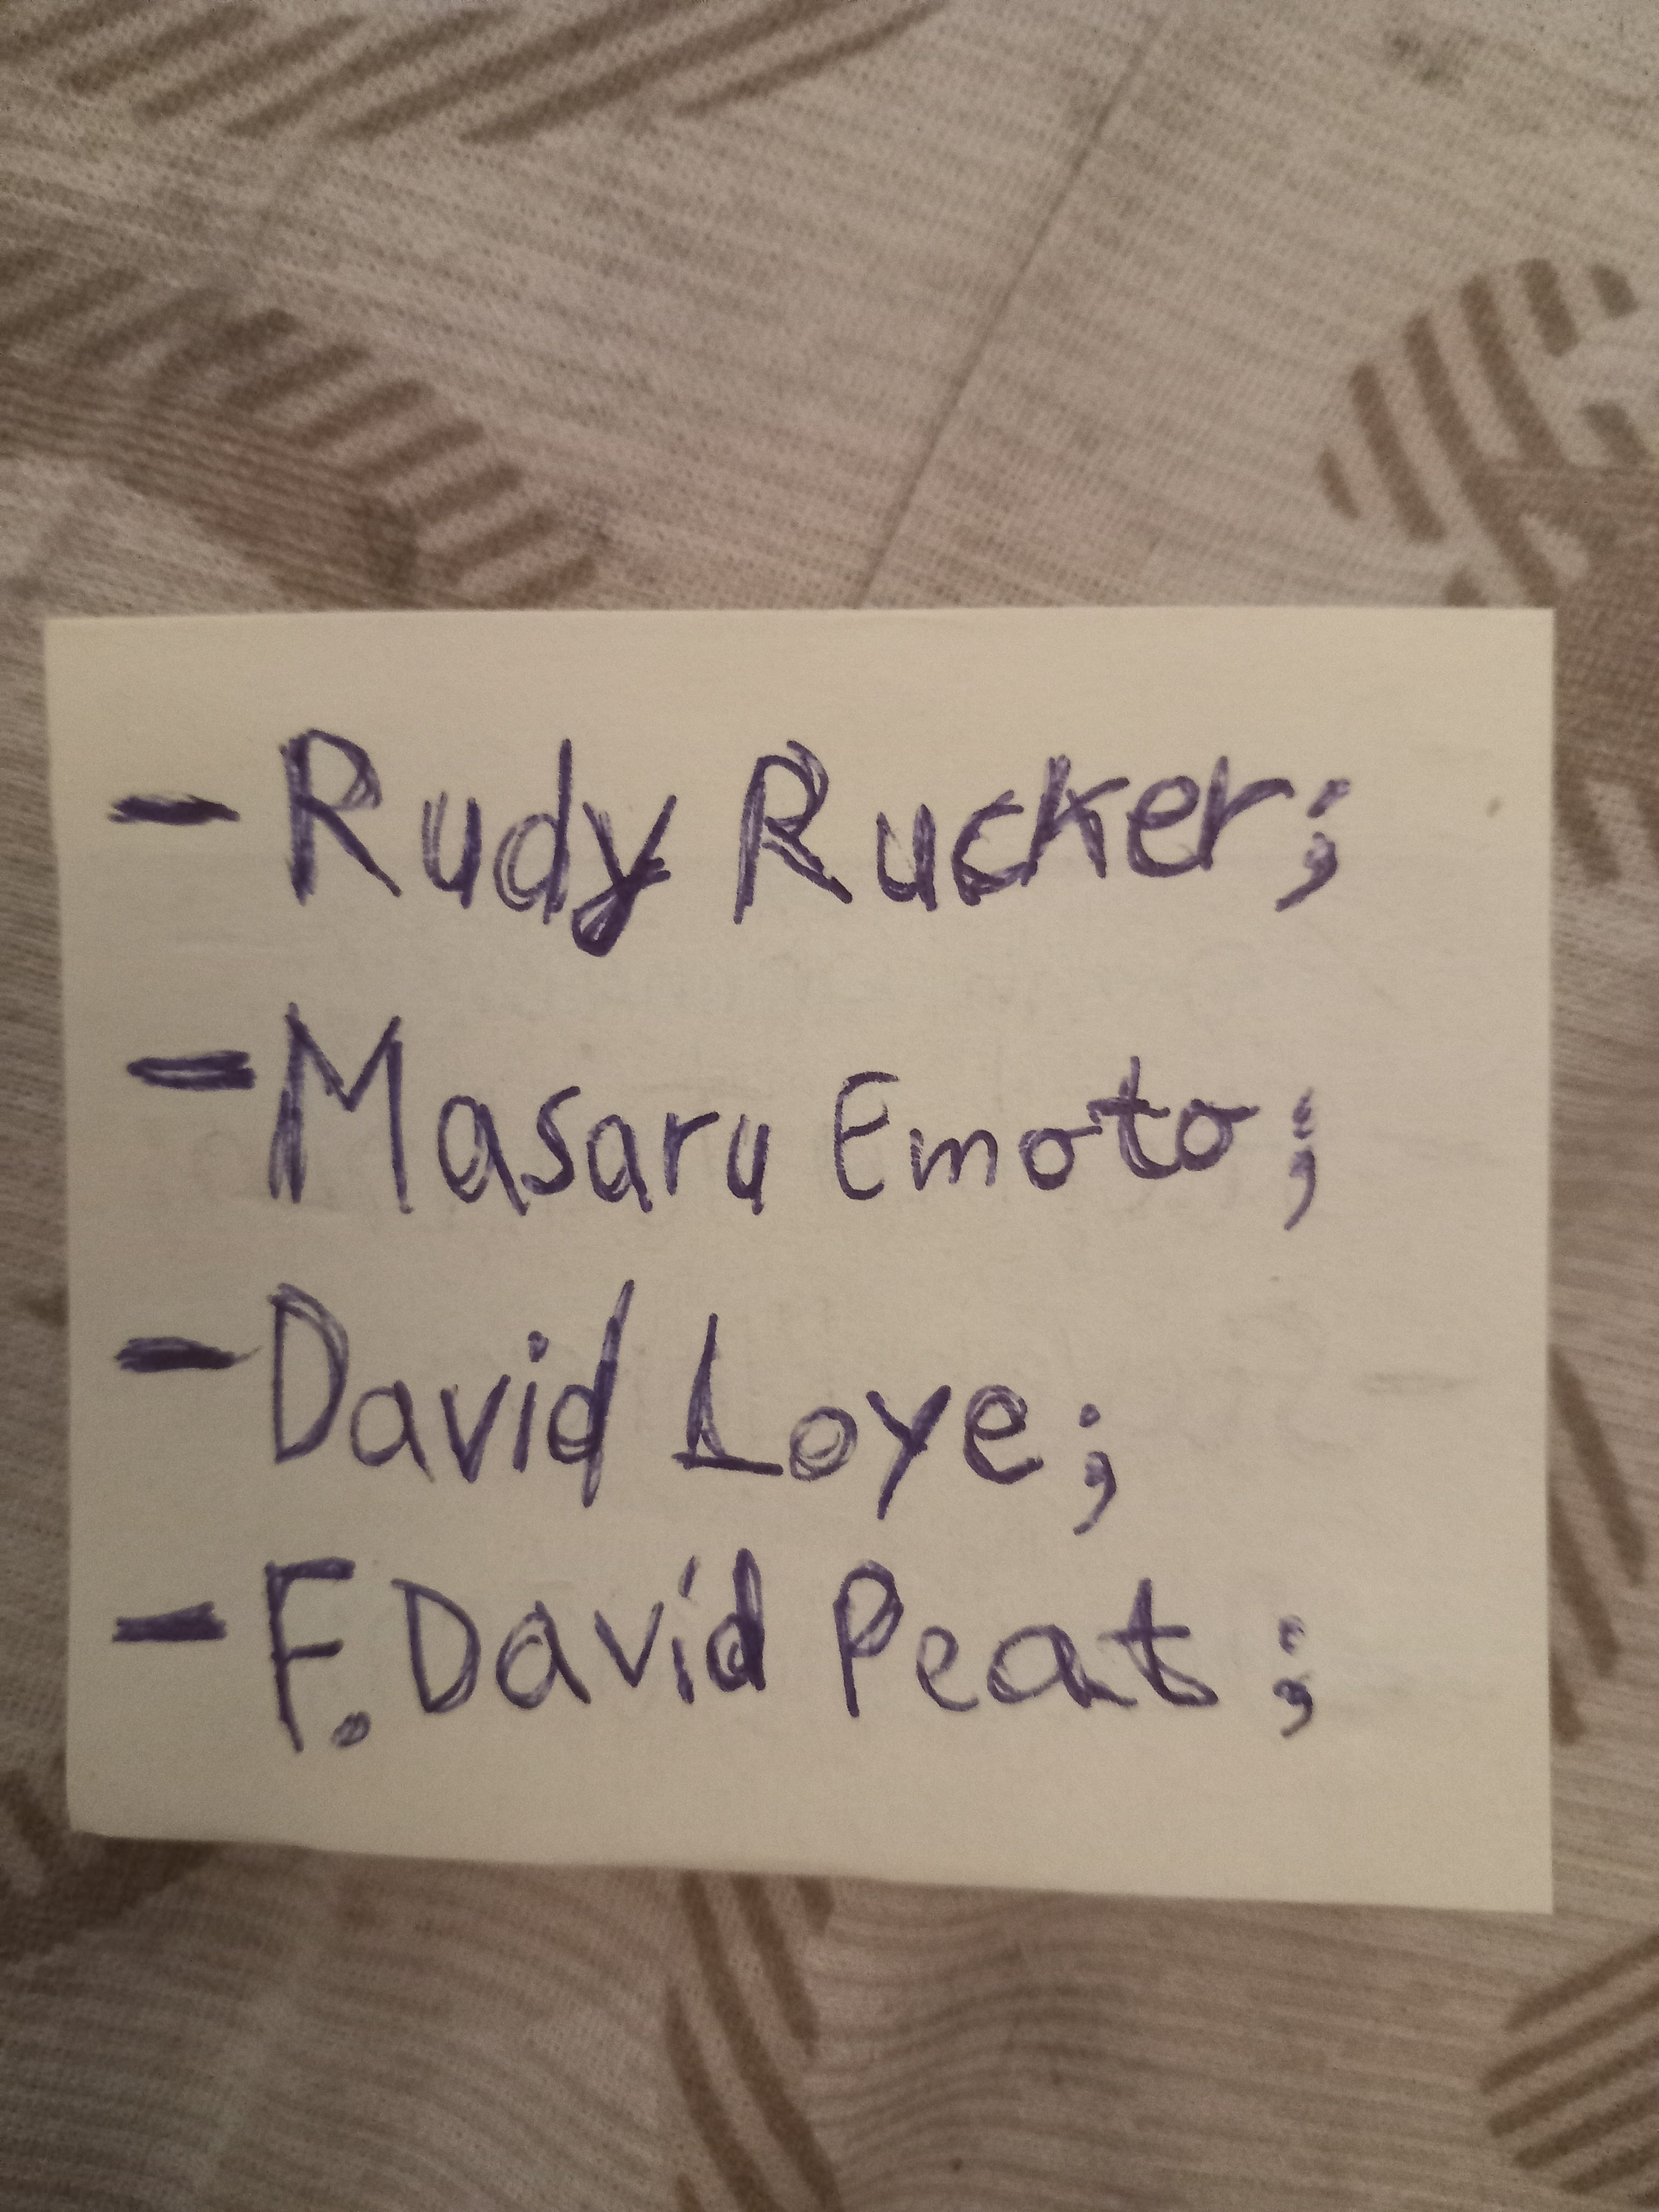 - Rudy Rucker;
- Masaru Emoto;
- David Loye;
- F. David Peat;